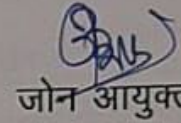 जोन आयुक्त